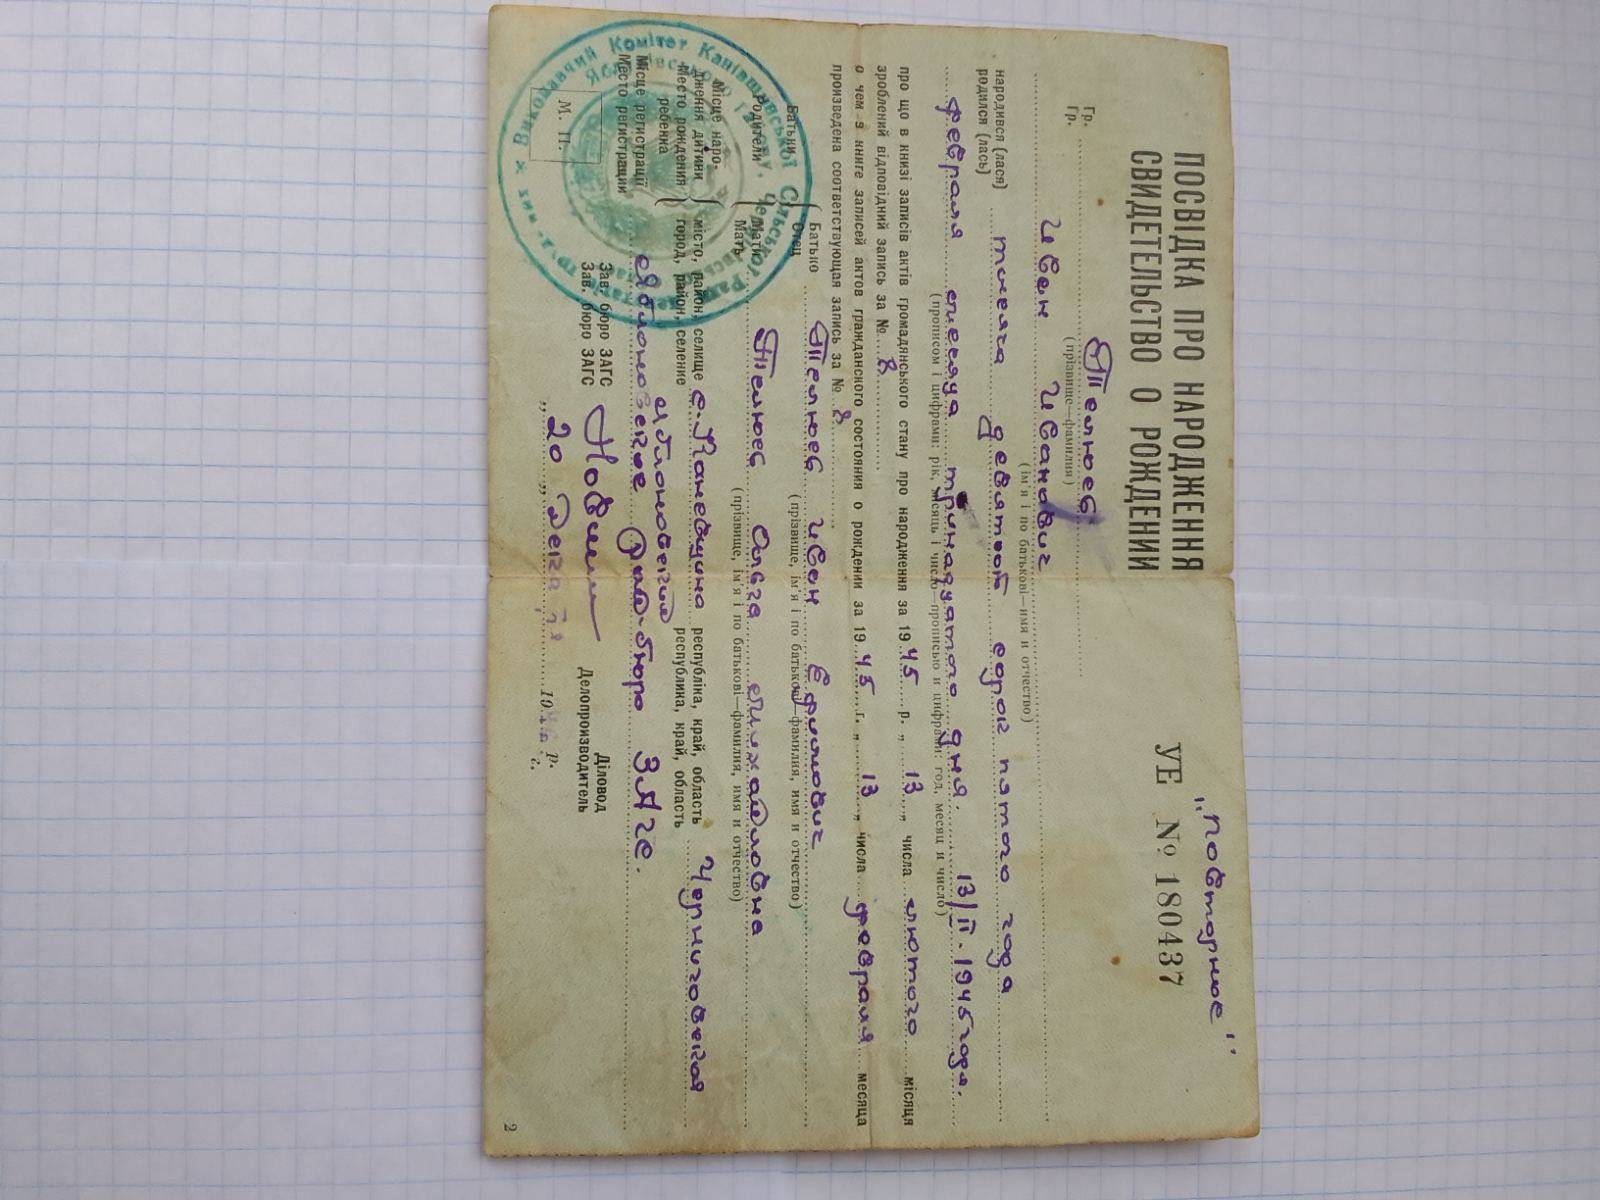 "Повторное"
ПОСВІДКА ПРО НАРОДЖЕННЯ
СВИДЕТЕЛЬСТВО О РОЖДЕНИИ
УЕ № 180437
Гр.
Гр. Телюев
(прізвище—фамилия)
Иван Иванович
(ім'я і по батькові—имя и отчество)
народився (лася)
родился (лась) тысяча девятьот сорок пятого года
февраля месяца тринадцатого дня. 13/II-1945 года.
(прописом і цифрами: рік, місяць і число—прописью и цифрами: год, месяц и число)
про що в книзі записів актів громадянського стану про народження за 1945 р. „ 13 „ числа лютого місяця
зроблений відповідний запись за № 8
о чем в книге записей актов гражданского состояния о рождении за 1945 г. „ 13 „ числа февраля месяца
произведена соответствующая запись за № 8
Батьки
Родители
Батько
Отец Телюев Иван Ефимович
(прізвище, ім'я і по батькові—фамилия, имя и отчество)
Мати
Мать Телюев Ольга Михайловна
(прізвище, ім'я і по батькові—фамилия, имя и отчество)
Місце народження дитини
Место рождения ребенка
місто, район, селище
город, район, селение
с. Каневщина
Яблоновский
республіка, край, область
республика, край, область
Черниговская
Місце регистрації
Место регистрации Яблоновское Рай-бюро ЗАГС.
М. П.
Зав. бюро ЗАГС
Зав. бюро ЗАГС
Діловод
Делопроизводитель
„ 20 „ 19 р.
г.
Виконавчий Комітет Канівщинської Сільської Ради
2